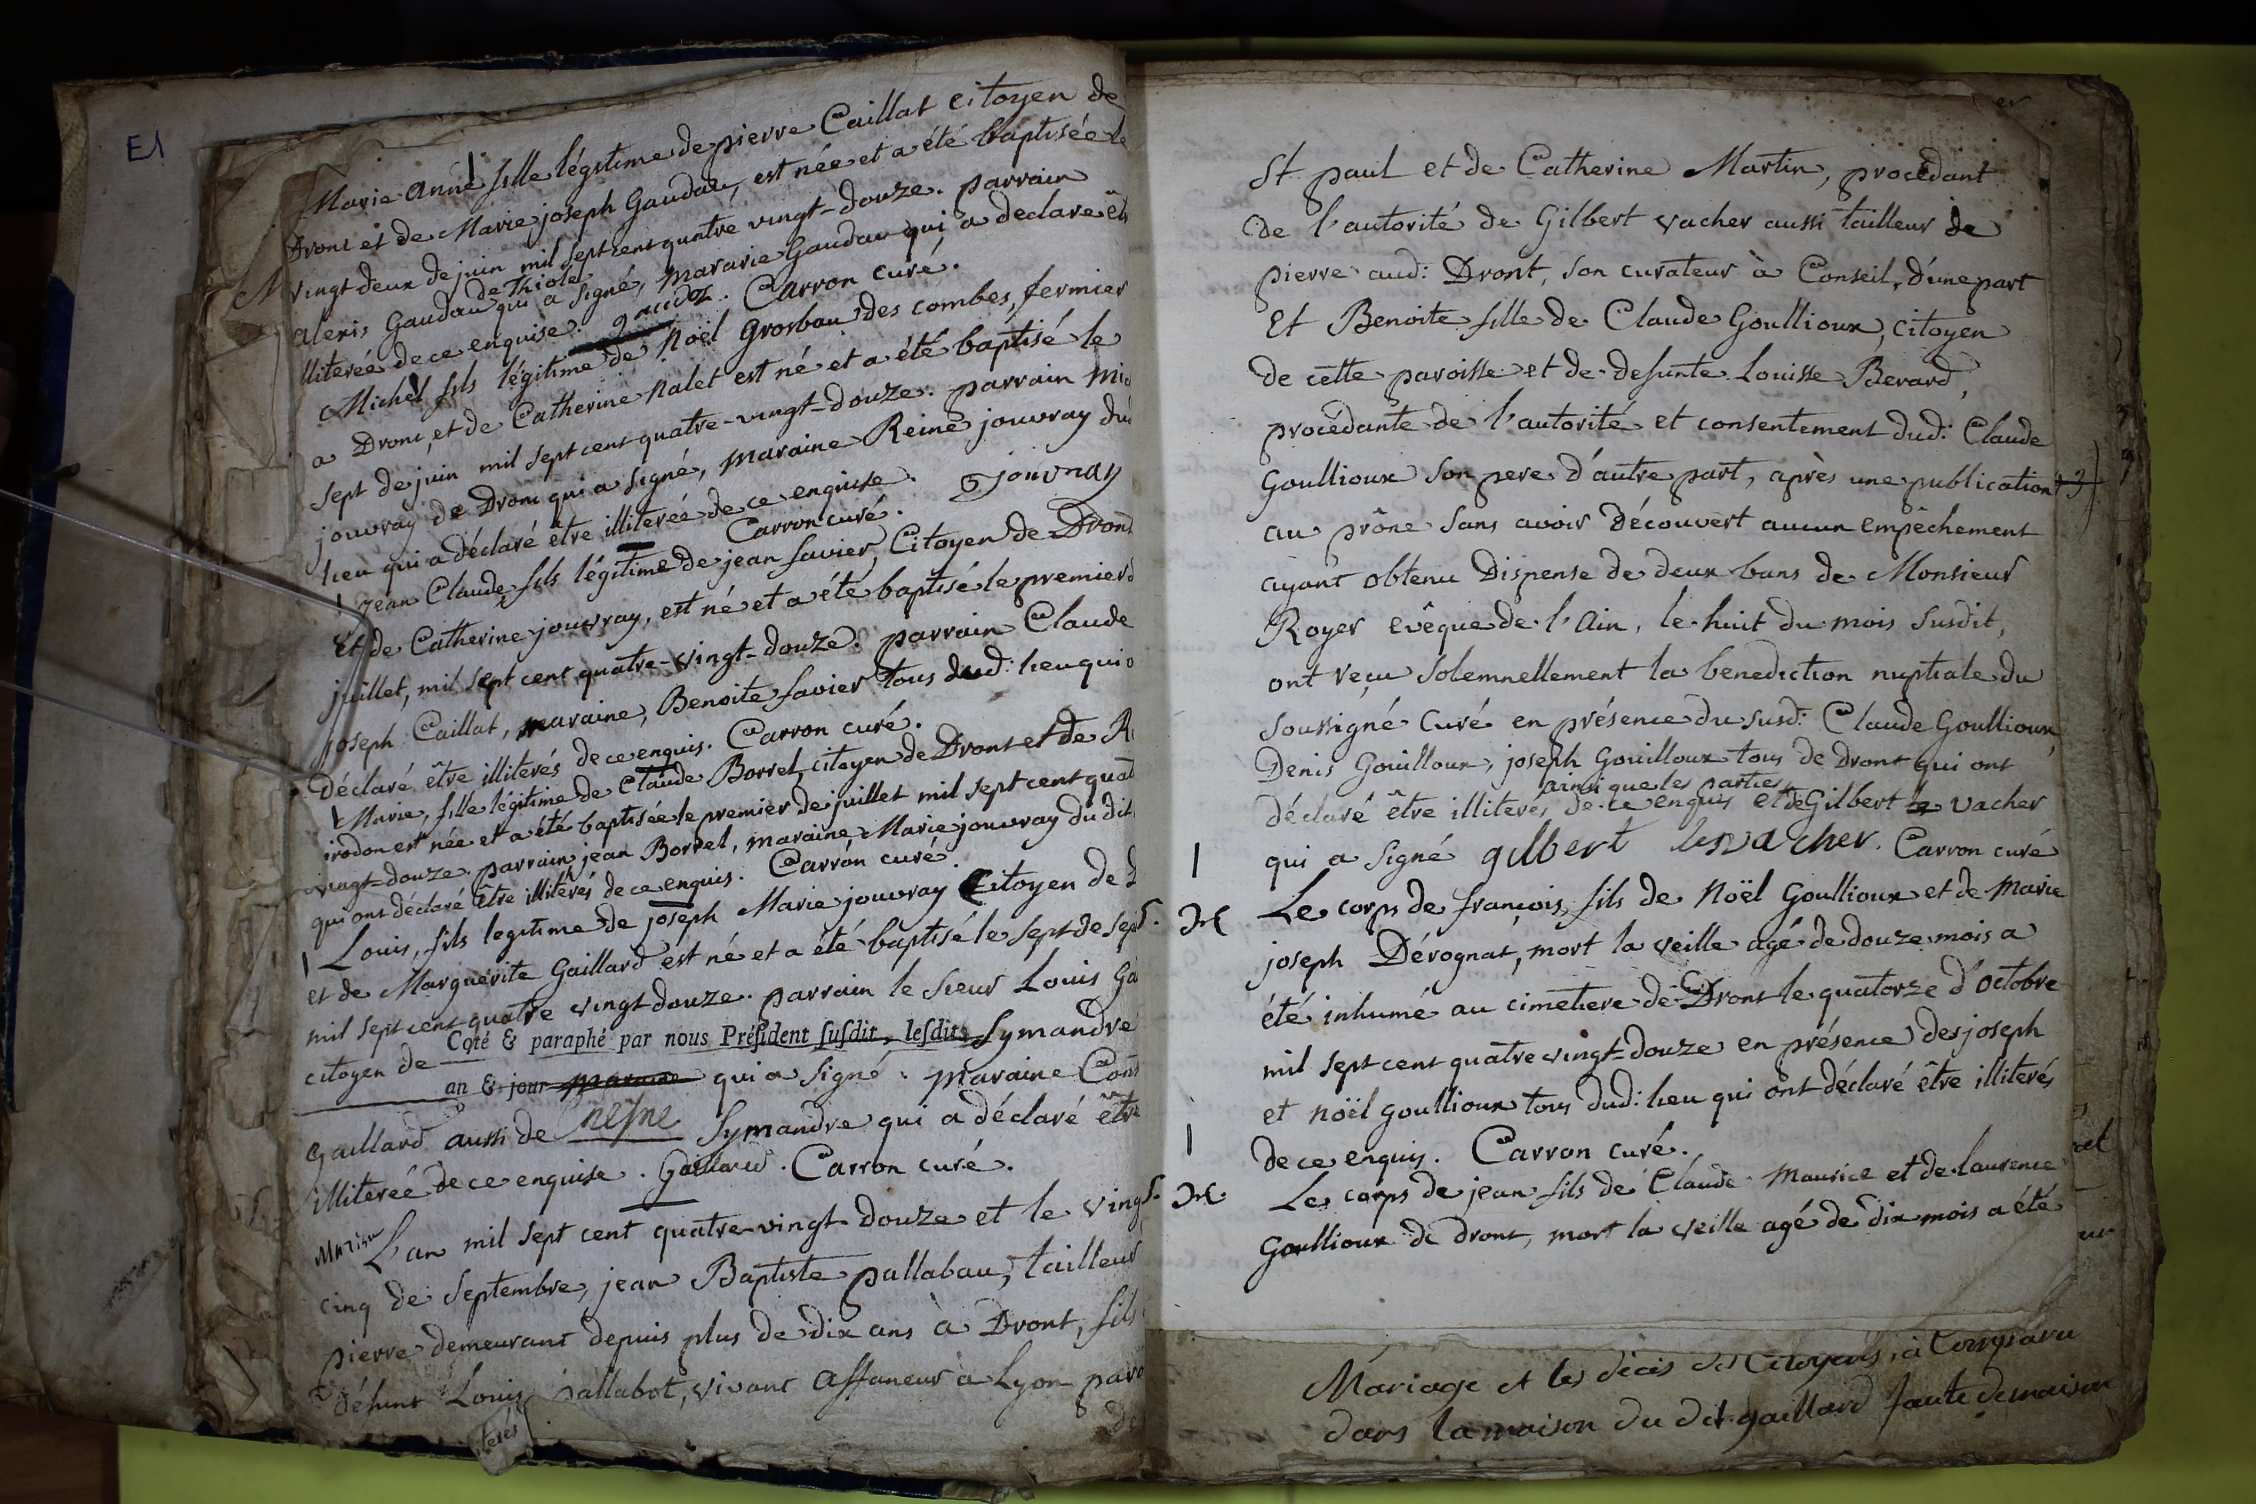 E1
Marie Anne fille légitime de pierre Caillat citoyen de
Dront et de Marie joseph Gaudau, est née et a été baptisée le
vingt deux de juin mil sept cent quatre vingt-douze. parrain
de Thiole
alexis Gaudau qui a signé, Mararie Gaudau qui a declare êt
lliterée de ce enquise. Carron curé.
Michel fils légitime de Noël Grosbau des combes, fermier
a Dront, et de Catherine Nalet est né et a été baptisé le
sept de juin mil sept cent quatre-vingt-douze. parrain Mic
jouvray de Dront qui a signé, maraine Reine jouvray dud
lieu qui a déclaré être illiterée de ce enquise. jouvray
Carron curé.
jean Claude fils légitime de jean favier, Citoyen de Dront
Et de Catherine jouvray, est né et a été baptisé le premier d
juillet, mil sept cent quatre-vingt-douze. parrain Claude
joseph Caillat, maraine, Benoite favier tous dud: lieu qui o
déclaré être illiterés de ce enquis. Carron curé.
Marie, fille légitime de Claude Borrel, citoyen de Dront et de R
irodon est née et a été baptisée le premier de juillet mil sept cent quat
vingt-douze. parrain jean Borrel, maraine Marie jouvray du dit
qui ont déclaré être illitérés de ce enquis. Carron curé.
Louis, fils legitime de joseph Marie jouvray Citoyen de D
et de Marguerite Gaillard est né et a été baptisé le sept de sept
mil sept cent quatre vingt douze. parrain le sieur Louis Ga
citoyen de Coté & paraphé par nous Président susdit, lesdits Symandre
an & jour maraine qui a signé. Maraine Cons
Gaillard aussi de Symandre qui a déclaré être
illiterée de ce enquise. Gaillard. Carron curé.
L'an mil sept cent quatre-vingt-douze et le vingt
cinq de septembre, jean Baptiste pallabau, tailleur
pierre demeurant depuis plus de dix ans à Dront, fils
défunt Louis pallabot, vivant affaneur à Lyon paro
de
terés
St paul et de Catherine Martin, procédant
de l'autorité de Gilbert vacher aussi tailleur de
pierre aud: Dront, son curateur à Conseil, d'une part
Et Benoite fille de Claude Goullioux, citoyen
de cette paroisse et de defunte Louisse Berard,
procédante de l'autorité et consentement dud: Claude
Goullioux son pere d'autre part, après une publication
au prône sans avoir découvert aucun empêchement
ayant obtenu Dispense de deux bans de Monsieur
Royer evêque de l'Ain, le huit du mois susdit,
ont reçu solemnellement la benediction nuptiale du
soussigné Curé en présence du susd: Claude Goullioux,
Denis Gouilloux, joseph Gouilloux tous de Dront qui ont
ainsi que les parties
déclaré être illiteres de ce enquis et de Gilbert vacher
qui a signé gilbert levacher. Carron curé
Le corps de francois, fils de Noël Goullioux et de Marie
joseph Dérognat, mort la veille agé de douze mois a
été inhumé au cimetiere de Dront le quatorze d'Octobre
mil sept cent quatre vingt-douze en présence de joseph
et noël goullioux tous dud: lieu qui ont déclaré être illiterés
de ce enquis. Carron curé.
Le corps de jean fils de Claude Maurice et de laurence
Goullioux de dront, mort la veille agé de dix mois a été
Mariage et les décés des Citoyens, ici Comparu
dans la maison du dit gaillard faute de maison